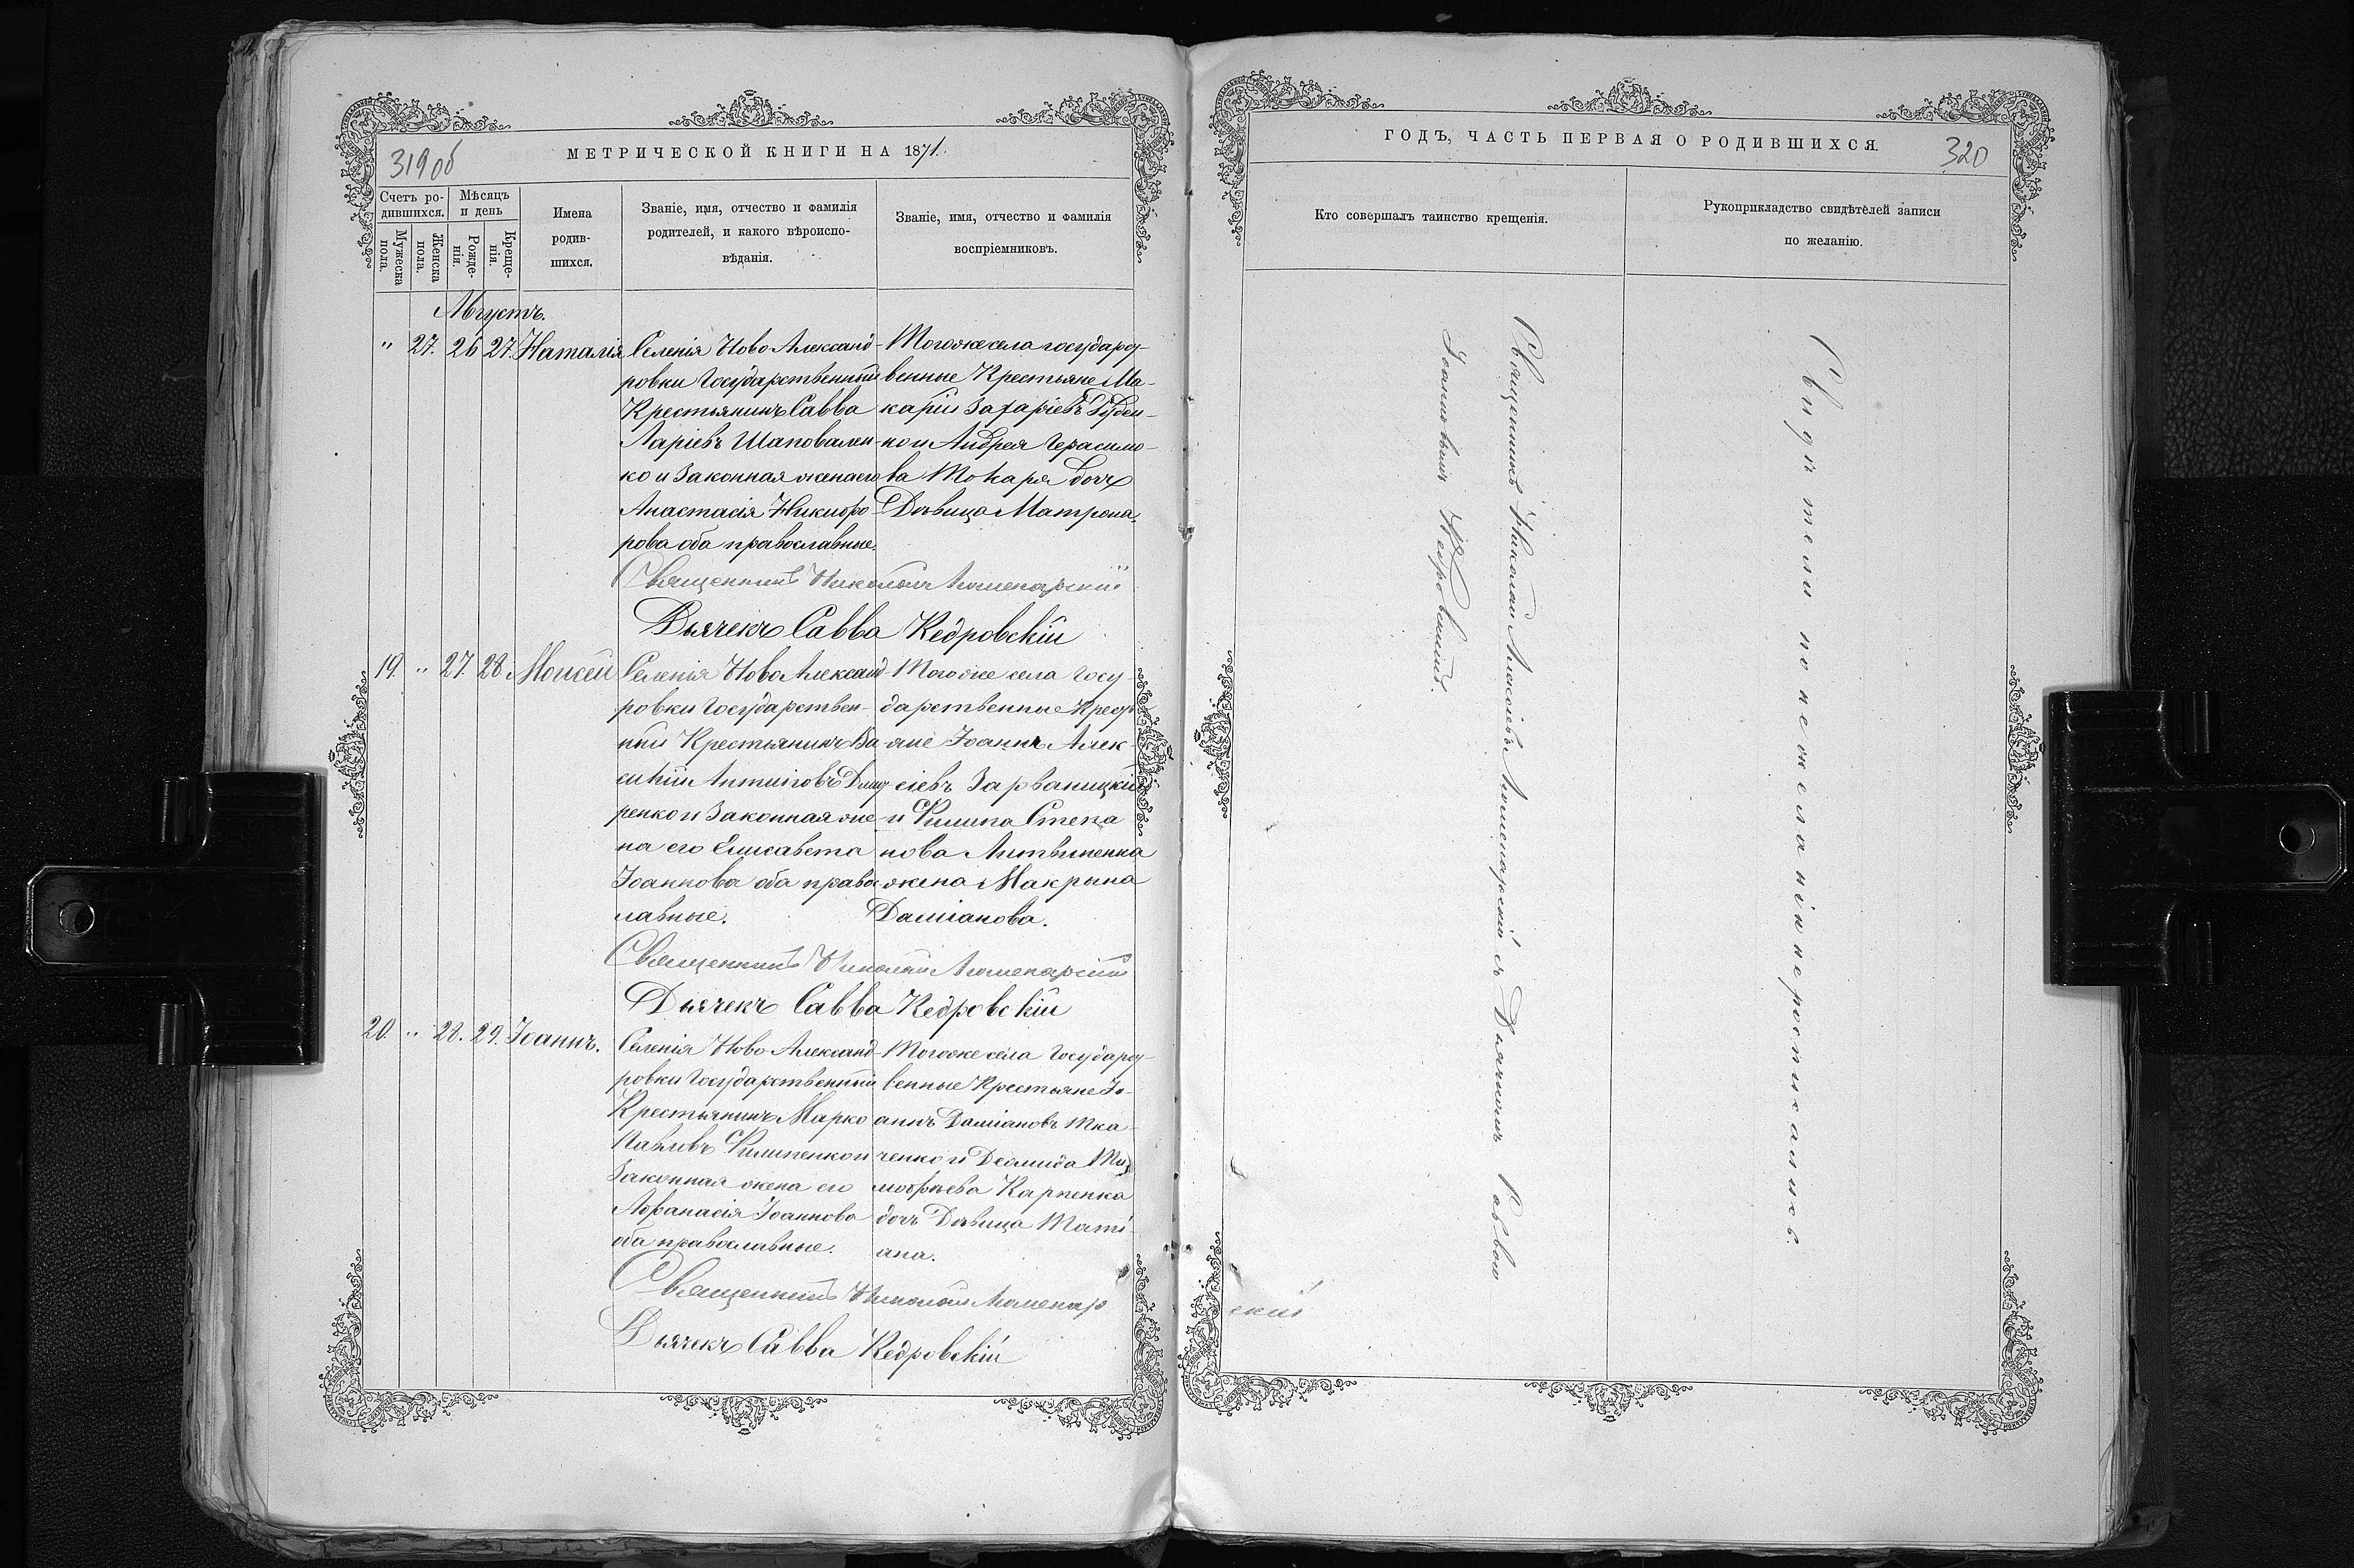 319 об
МЕТРИЧЕСКОЙ КНИГИ НА 1871.
Счетъ ро-
дившихся.
Мѣсяцъ
и день
Мужеска
пола.
Женска
пола.
Рожде-
нія.
Креще-
нія.
Имена
родив-
шихся.
Званіе, имя, отчество и фамилія
родителей, и какого вѣроиспо-
вѣданія.
Званіе, имя, отчество и фамилія
воспріемниковъ.
Августъ.
" 27. 26 27. Наталія
Селенія Ново Александ-
ровки Государственный
Крестьянинъ Савва
Ларіевъ Шаповален-
ко и Законная жена его
Анастасія Никифо-
рова оба православные.
Тогоже села государст-
венные Крестьяне Ма-
карій Захаріевъ Губен-
ко и Андрея Герасимо-
ва Токаря дочь
Дѣвица Матрона.
Священникъ Николай
Дьячекъ Савва Кедровскій
19. " 27. 28. Моисей
Селенія Ново Александ-
ровки Государствен-
ный Крестьянинъ Ва
силій Антиповъ
ренко и Законная же-
на его Елисавета
Іоаннова оба правос
лавные.
Тогоже села Госу-
дарственные Крест
яне Іоаннъ Алек-
сіевъ Зарваницкій
и Филипа Степа
нова Литвиненка
жена Макрына
Даміанова.
Священникъ Николай
Дьячекъ Савва Кедровскій
20. " 28. 29. Іоаннъ.
Селенія Ново Александ-
ровки Государственный
Крестьянинъ Марко
Павловъ Филипенко и
Законная жена его
Афанасія Іоаннова
оба православные.
Тогоже села Государст-
венные Крестьяне Іо-
аннъ Даміановъ Тка-
ченко и Деомида Ти
мофѣева Карпенка
дочь Дѣвица Таті-
ана.
Священникъ Николай
скій
Дьячекъ Савва Кедровскій
ГОДЪ, ЧАСТЬ ПЕРВАЯ О РОДИВШИХСЯ.
320
Кто совершалъ таинство крещенія.
Рукоприкладство свидѣтелей записи
по желанію.
Священникъ Николай съ Дьячкомъ Саввою
Іоанновымъ Кедровскимъ.
Свидѣтели по нежеланію нерописались.